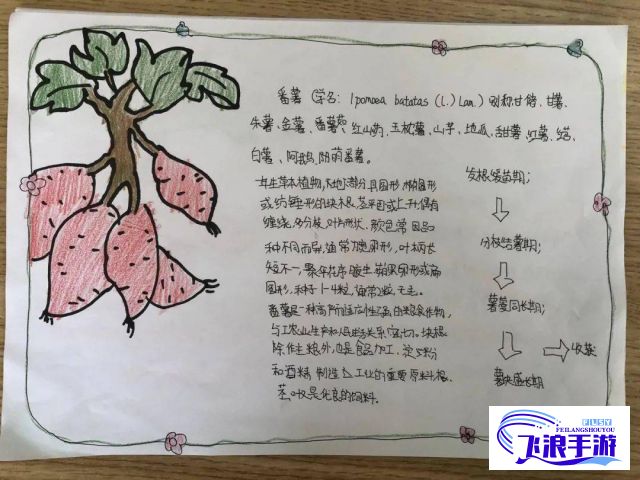 番薯（学名：Ipomoea batatas (L.) Lam.）别称甘储、甘薯、
朱薯、金薯、番薯茹、红山药、玉枕薯、山芋、地瓜、甜薯、红薯、
白薯、阿鹅、萌番薯。
一年生草本植物,地下部分具圆形、椭圆形
或纺锤形的块根,茎平卧或上升,偶有
缠绕,多分枝,叶片形状、颜色常因品
种不同而异,通常为宽卵形,叶柄长
短不一,聚伞花序腋生,蒴果卵形或扁
圆形,种子1-4粒,通常2粒,无毛。
番薯是一种高产而适应性强的粮食作物,
与工农业生产和人民生活关系密切。块根
除作主粮外,也是食品加工、淀粉
和酒精制造工业的重要原料,根、
茎、叶又是优良的饲料。
发根缓苗期;
分枝结薯期;
薯蔓同长期;
薯块盛长期
收获
FLSY
FEILANGSHOUYOU
飞浪手游